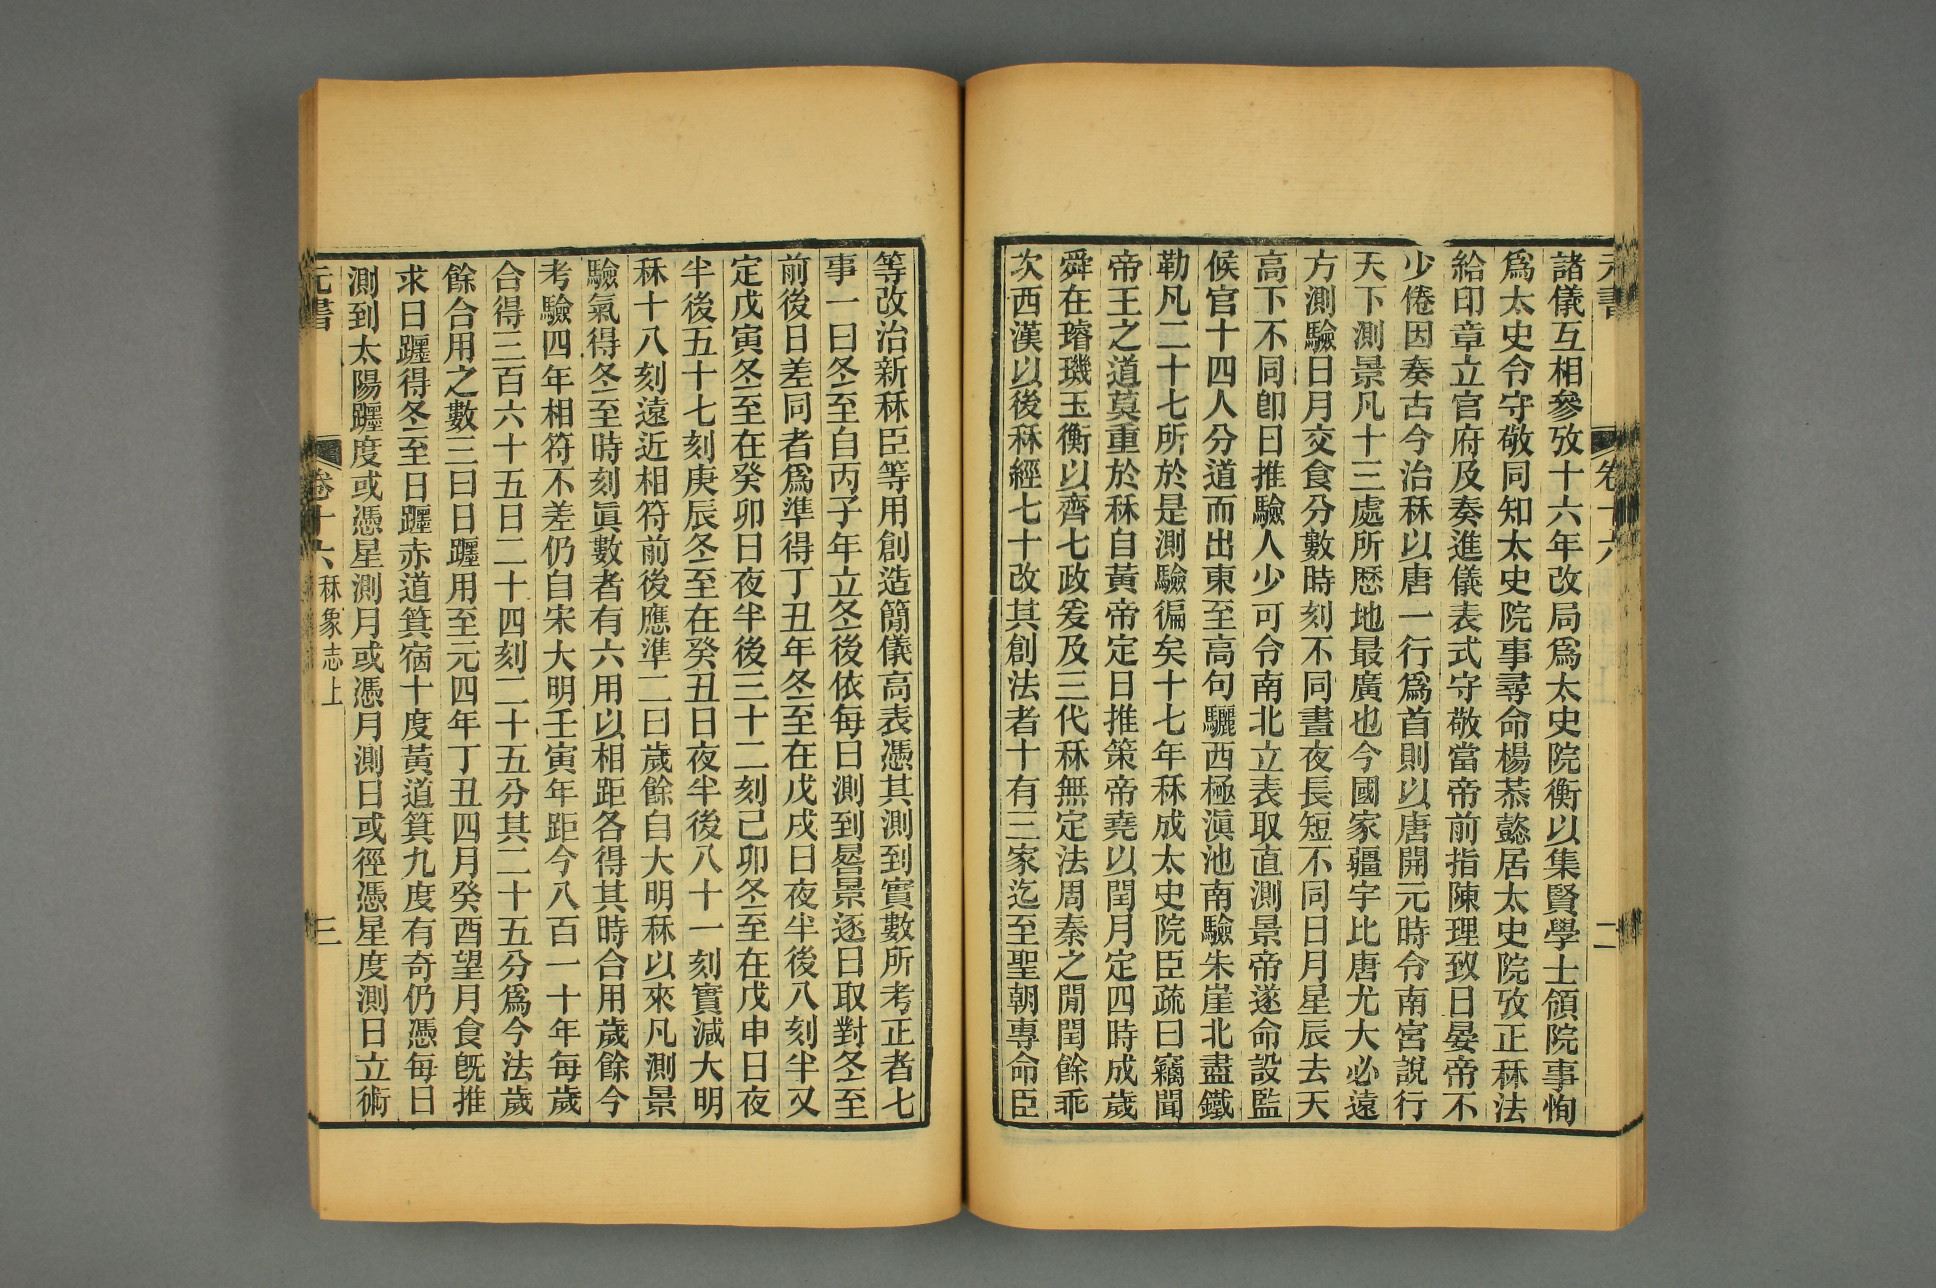 元書
卷十六
二
諸儀互相參攷十六年改局爲太史院衡以集賢學士領院事恂
爲太史令守敬同知太史院事尋命楊恭懿居太史院攷正秝法
給印章立官府及奏進儀表式守敬當帝前指陳理致日晏帝不
少倦因奏古今治秝以唐一行爲首則以唐開元時令南宮說行
天下測景凡十三處所歷地最廣也今國家疆宇比唐尤大必遠
方測驗日月交食分數時刻不同晝夜長短不同日月星辰去天
高下不同卽日推驗人少可令南北立表取直測景帝遂命設監
候官十四人分道而出東至高句驪西極滇池南驗朱崖北盡鐵
勒凡二十七所於是測驗徧矣十七年秝成太史院臣疏曰竊聞
帝王之道莫重於秝自黃帝定日推策帝堯以閏月定四時成歲
舜在璿璣玉衡以齊七政爰及三代秝無定法周秦之閒閏餘乖
次西漢以後秝經七十改其創法者十有三家迄至聖朝專命臣
等改治新秝臣等用創造簡儀高表憑其測到實數所考正者七
事一曰冬至自丙子年立冬後依每日測到晷景逐日取對冬至
前後日差同者爲準得丁丑年冬至在戊戌日夜半後八刻半又
定戊寅冬至在癸卯日夜半後三十二刻己卯冬至在戊申日夜
半後五十七刻庚辰冬至在癸丑日夜半後八十一刻實減大明
秝十八刻遠近相符前後應準二曰歲餘自大明秝以來凡測景
驗氣得冬至時刻眞數者有六用以相距各得其時合用歲餘今
考驗四年相符不差仍自宋大明壬寅年距今八百一十年每歲
合得三百六十五日二十四刻二十五分其二十五分爲今法歲
餘合用之數三曰日躔用至元四年丁丑四月癸酉望月食旣推
求日躔得冬至日躔赤道箕宿十度黃道箕九度有奇仍憑每日
測到太陽躔度或憑星測月或憑月測日或徑憑星度測日立術
元書
卷十六
秝象志上
三